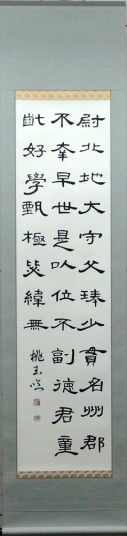 尉北地大守父琫少貫名州郡
不幸早世是以位不副德君童
齔好學甄極毖緯無
桃玉